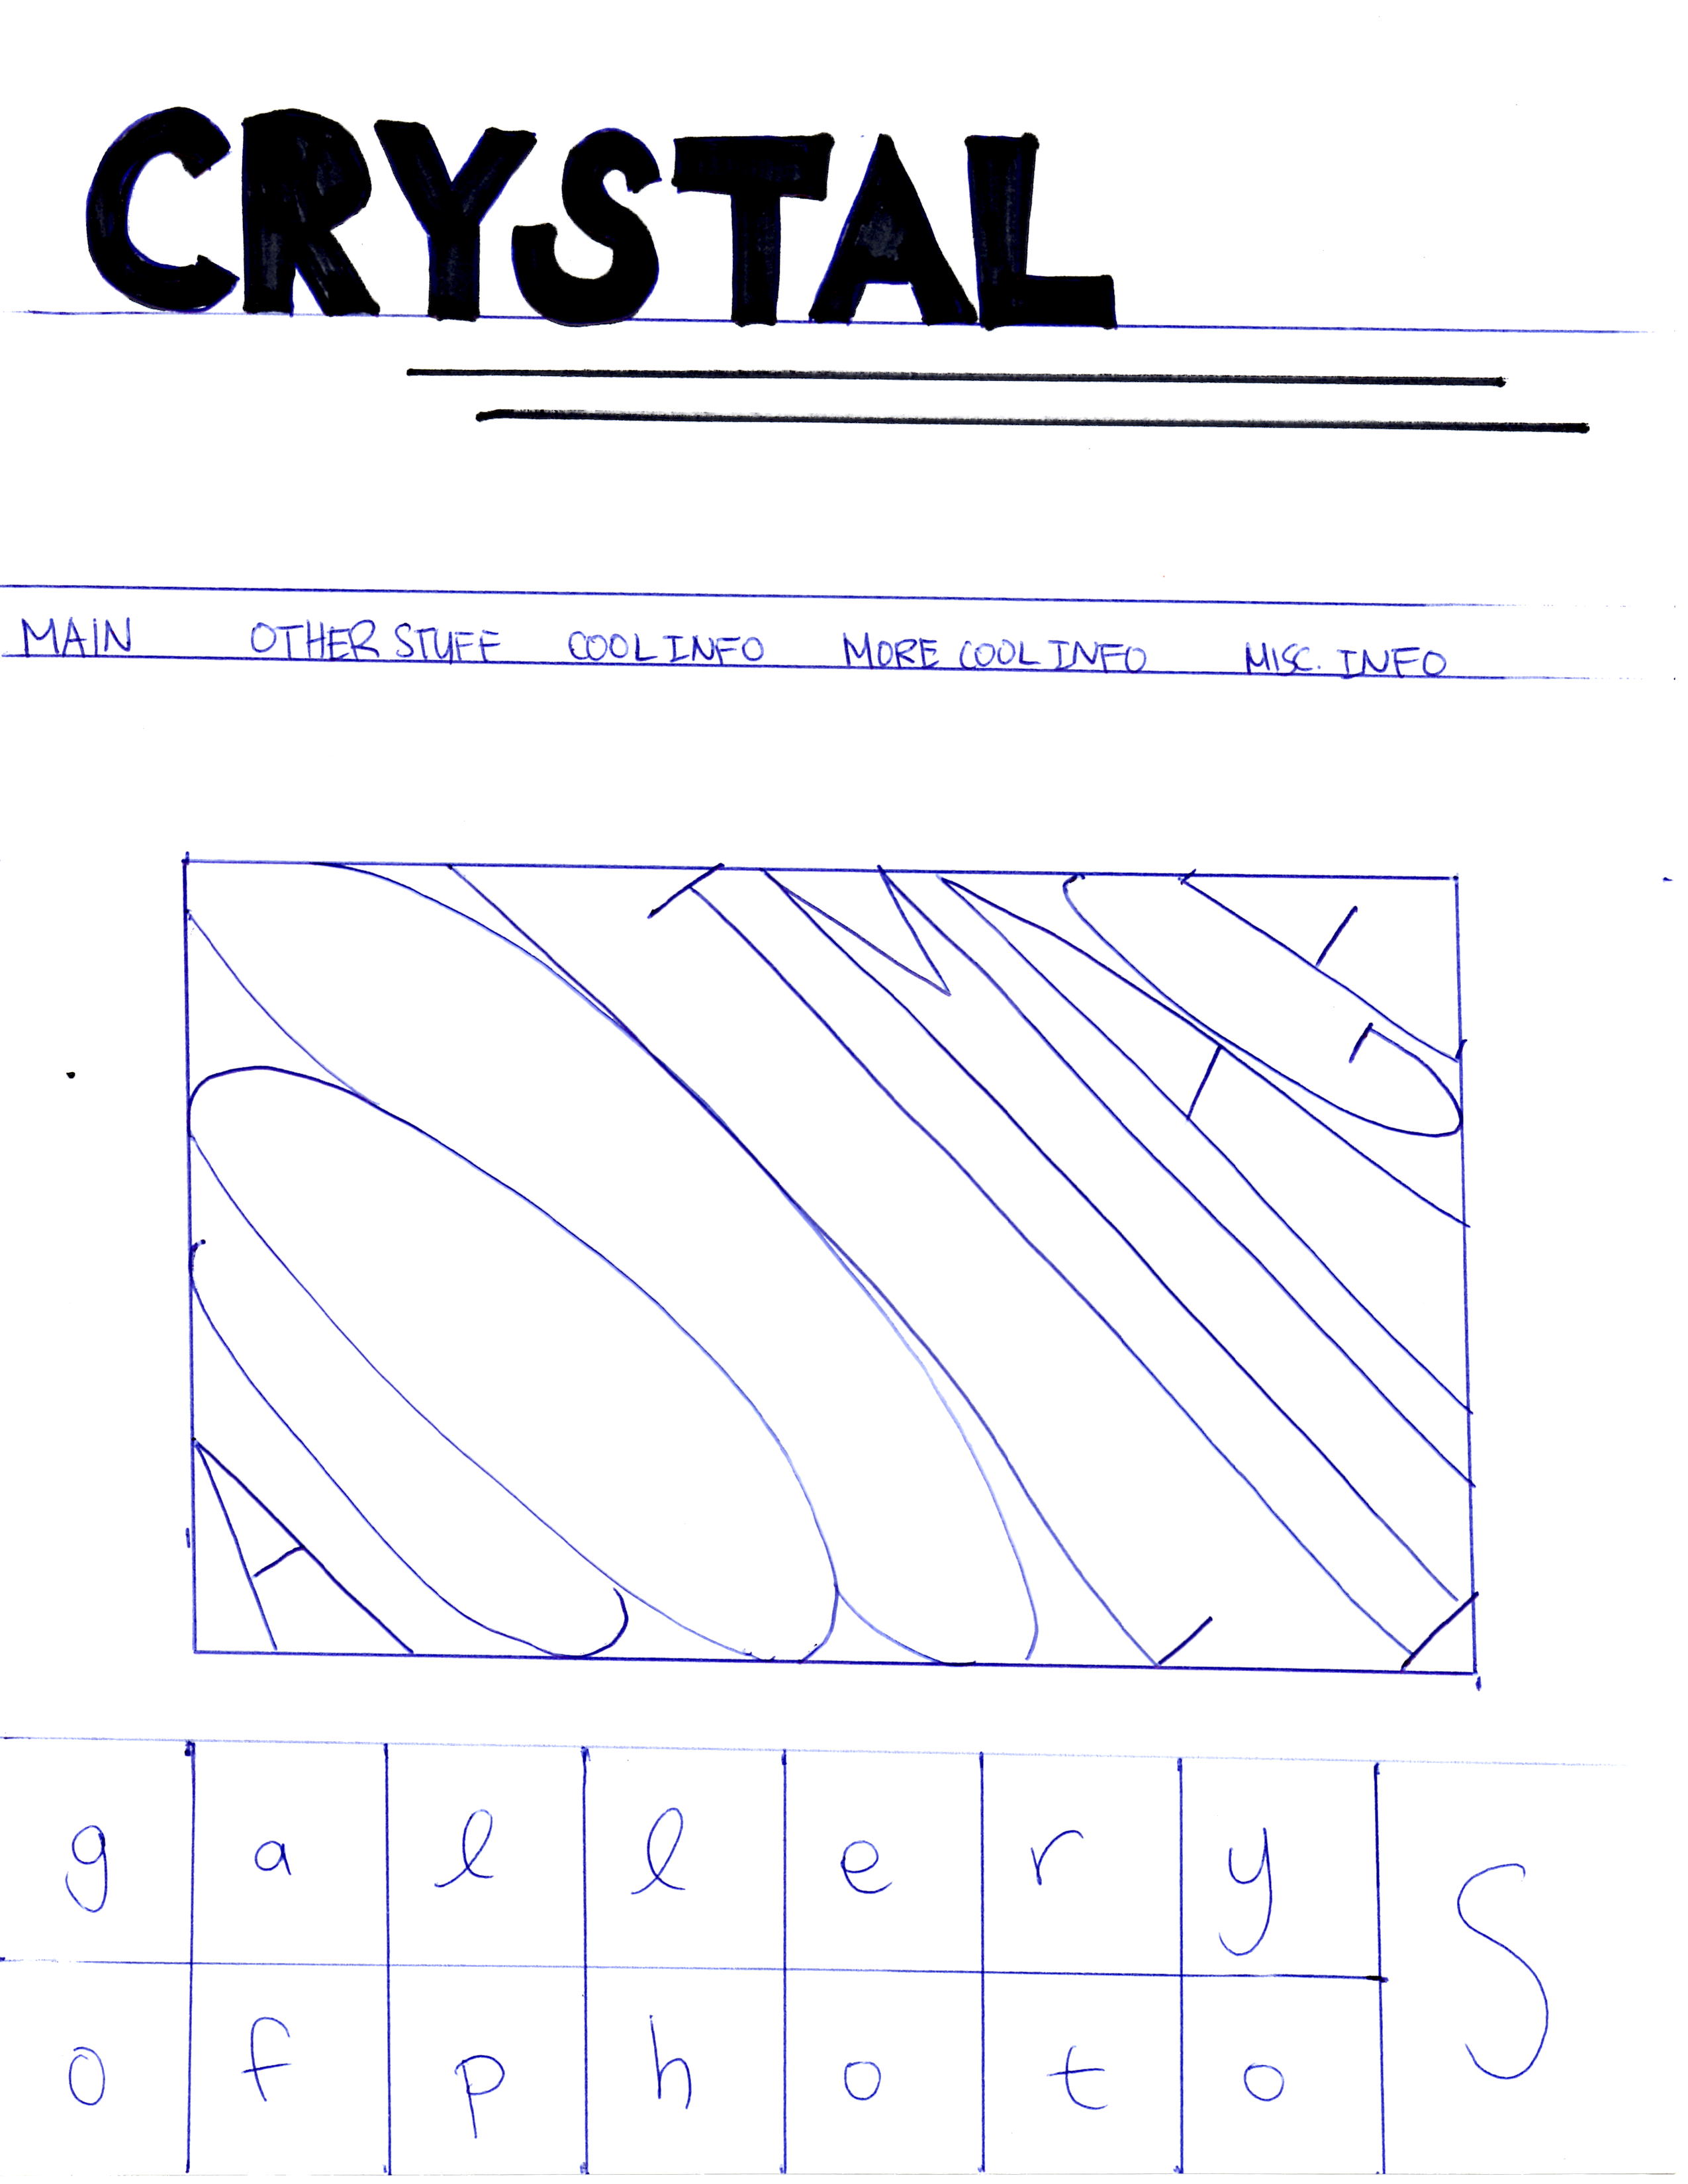 CRYSTAL
MAIN OTHER STUFF COOL INFO MORE COOL INFO MISC. INFO
A COOL IMAGE
g a l l e r y
o f p h o t o S